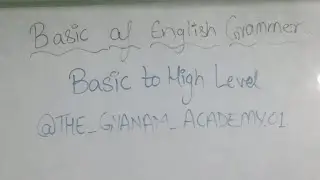 Basic of English Grammer
Basic to High Level
@THE_GYANAM_ACADEMY.C1